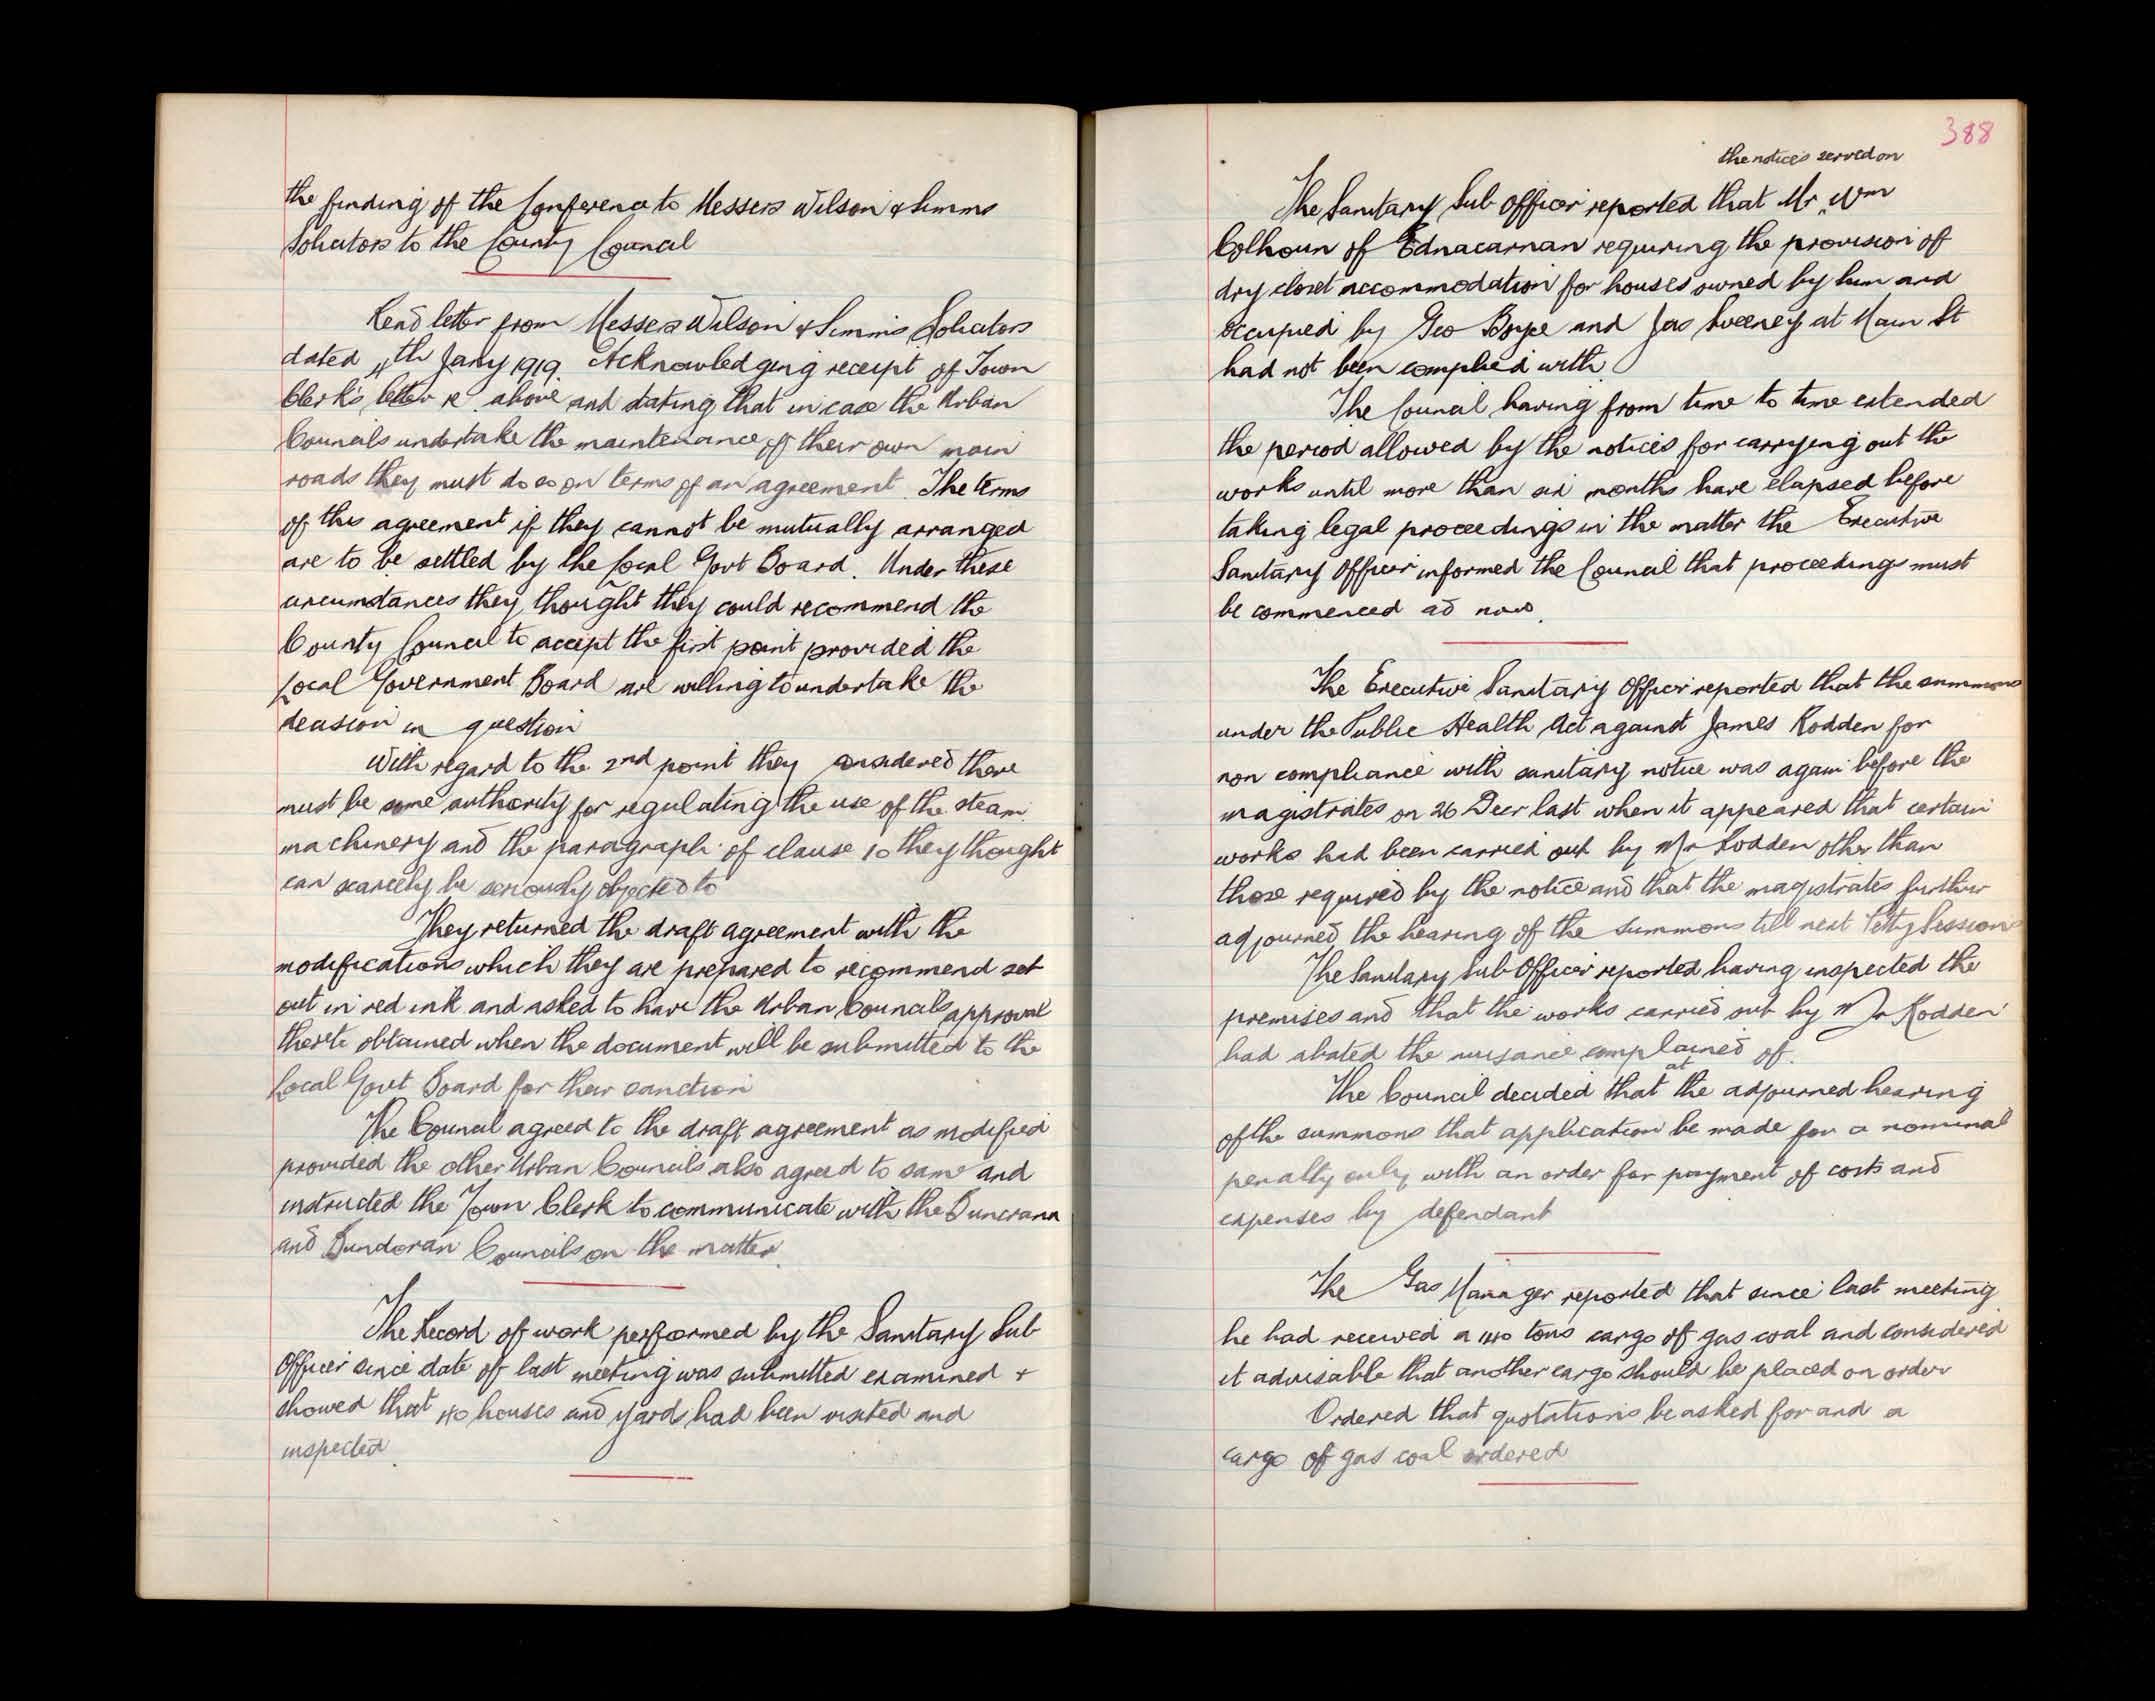 the finding of the Conference to Messers Wilson & Simms
Solicitors to the County Council
Read letter from Messers Wilson & Simms Solicitors
dated 4th Jany 1919 Acknowledging receipt of Town
Clerk's letter re above and stating that in case the Urban
Councils undertake the maintenance of their own main
roads they must do so on terms of an agreement. The terms
of this agreement if they cannot be mutually arranged
are to be settled by the Local Govt Board. Under these
circumstances they thought they could recommend the
County Council to accept the first point provided the
Local Government Board are willing to undertake the
decision in question
With regard to the 2nd point they considered there
must be some authority for regulating the use of the steam
machinery and the paragraph of clause 10 they thought
can scarcely be seriously objected to
They returned the draft agreement with the
modifications which they are prepared to recommend set
out in red ink and asked to have the Urban Councils approval
thereto obtained when the document will be submitted to the
Local Govt Board for their sanction
The Council agreed to the draft agreement as modified
provided the other Urban Councils also agreed to same and
instructed the Town Clerk to communicate with the Buncrana
and Bundoran Councils on the matter.
The Record of work performed by the Sanitary Sub
Officer since date of last meeting was submitted examined &
showed that 40 houses and yards had been visited and
inspected.
388
the notices served on
The Sanitary Sub Officer reported that Mr Wm
Colhoun of Ednacarnan requiring the provision of
dry closet accommodation for houses owned by him and
occupied by Geo Boyce and Jas Sweeney at Main St
had not been complied with
The Council having from time to time extended
the period allowed by the notices for carrying out the
works until more than six months have elapsed before
taking legal proceedings in the matter the Executive
Sanitary Officer informed the Council that proceedings must
be commenced now.
The Executive Sanitary Officer reported that the summons
under the Public Health Act against James Rodden for
non compliance with sanitary notice was again before the
magistrates on 26 Decr last when it appeared that certain
works had been carried out by Mr Rodden other than
those required by the notice and that the magistrates further
adjourned the hearing of the summons till next Petty Sessions
The Sanitary Sub Officer reported having inspected the
premises and that the works carried out by Mr Rodden
had abated the nuisance complained of.
at
The Council decided that the adjourned hearing
of the summons that application be made for a nominal
penalty only with an order for payment of costs and
expenses by defendant
The Gas Manager reported that since last meeting
he had received a 140 tons cargo of gas coal and considered
it advisable that another cargo should be placed on order
Ordered that quotations be asked for and a
cargo of gas coal ordered